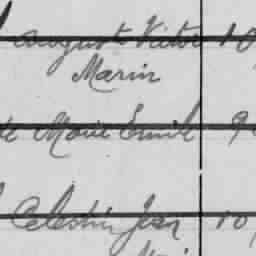 August Victor 10
Marin
de Marie Emile 9
Celestin Jean 10